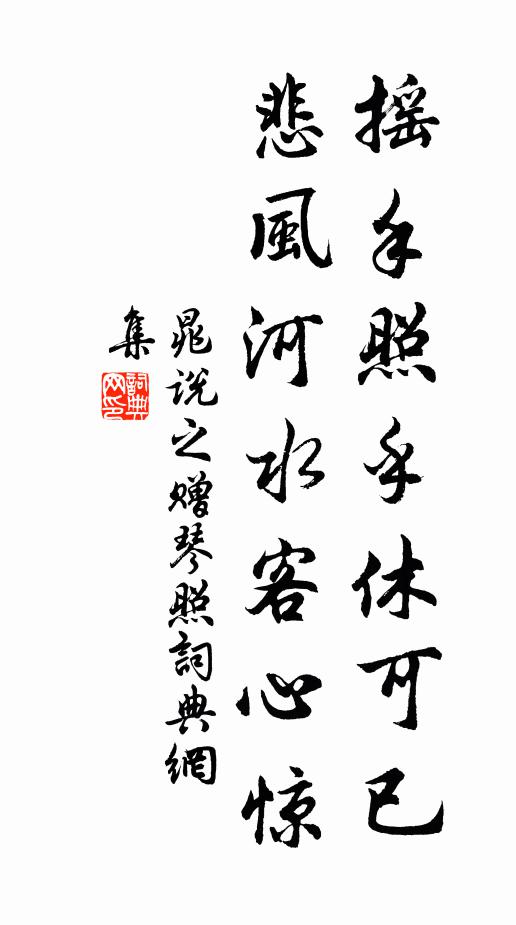 摇手照手休可已
悲風河水客心惊
晁说之赠琴照詞典網
集
詞典
网印